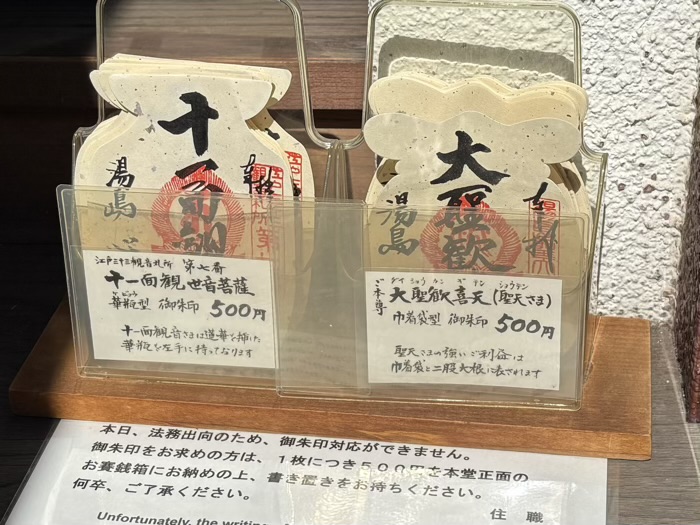 十一面観
奉拝
湯島
江戸三十三観音札所 第七番
十一面観世音菩薩
華瓶型 御朱印 500円
十一面観音さまは蓮華を挿した
華瓶を左手に持っております
大聖歓
奉拝
湯島
ご本尊 大聖歓喜天(聖天さま)
ダイショウカンギテン ショウテン
巾着袋型 御朱印 500円
聖天さまの強いご利益は
巾着袋と二股大根に表されます
本日、法務出向のため、御朱印対応ができません。
御朱印をお求めの方は、1枚につき500円を本堂正面の
お賽銭箱にお納めの上、書き置きをお持ちください。
何卒、ご了承ください。
住職
Unfortunately, the writing